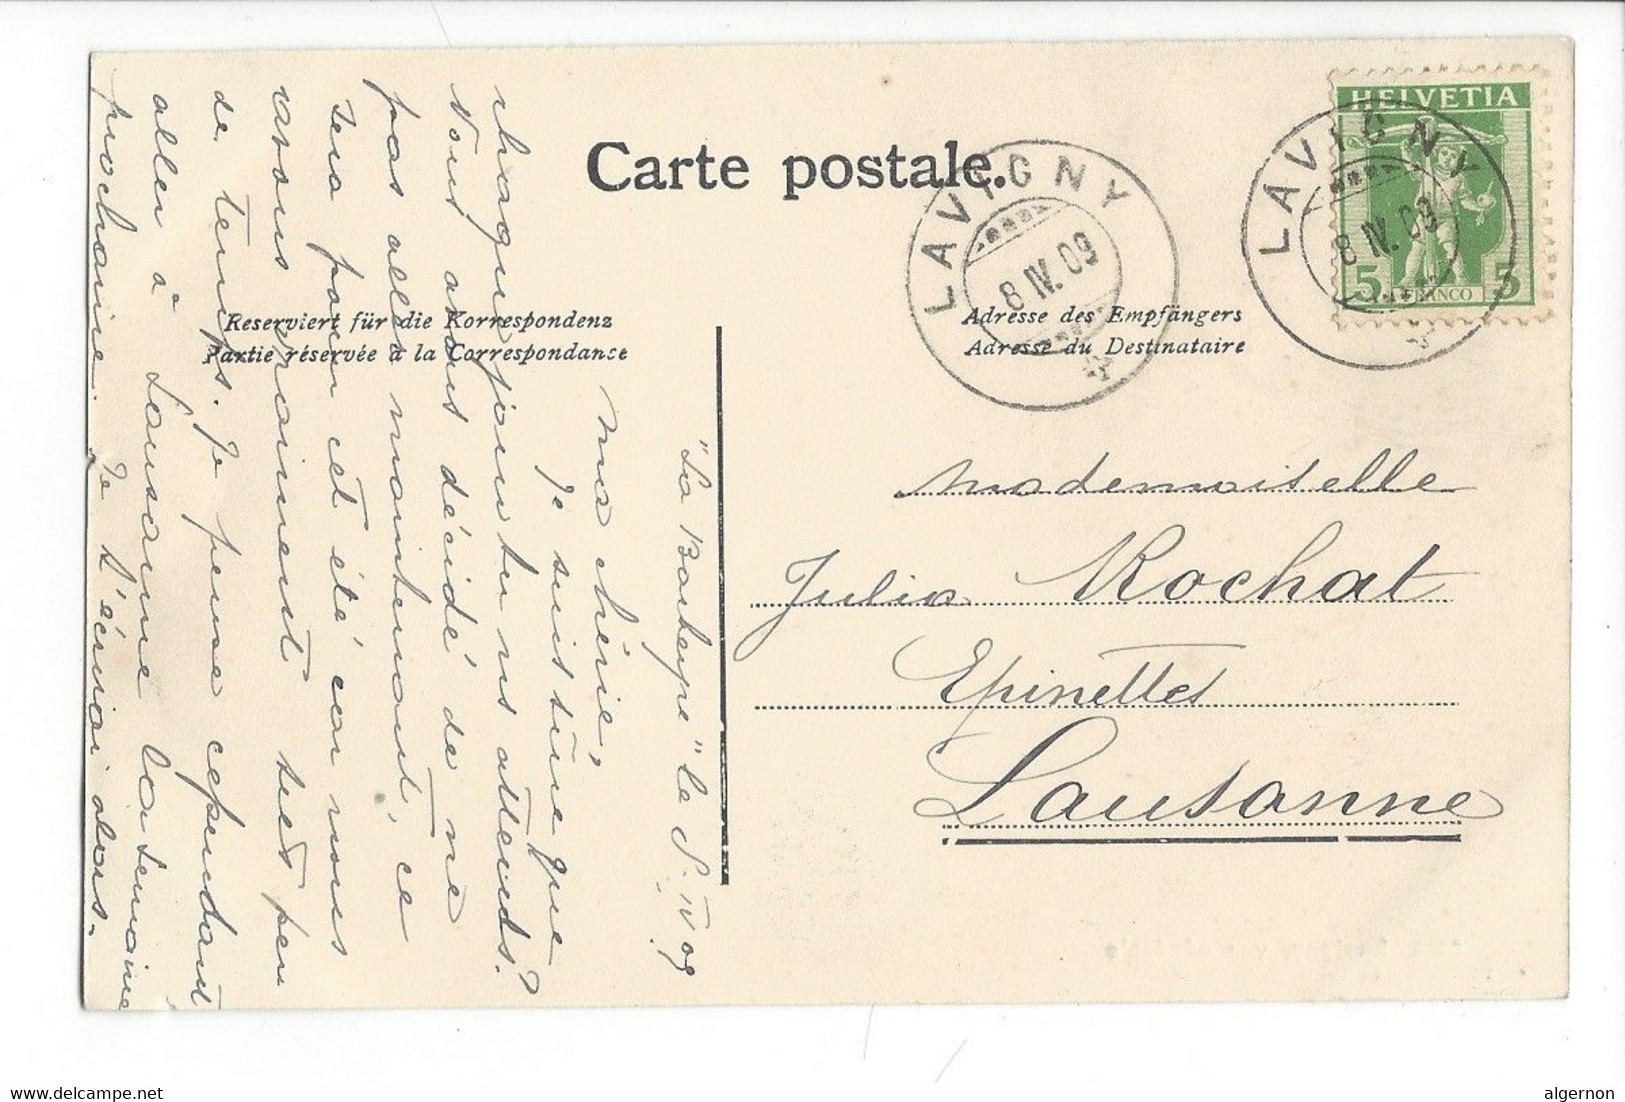 Carte postale.
HELVETIA
5 FRANCO 5
LAVIGNY
8 IV. 09
LAVIGNY
8 IV. 09
Reserviert für die Korrespondenz
Partie réservée à la Correspondance
Adresse des Empfängers
Adresse du Destinataire
Mademoiselle
Julia Rochat
Epinettes
Lausanne
"La
" le 8. IV 09
Ma chérie,
Je suis sûre que
chaque jour tu ns attends?
Nous avons décidé de ne
pas aller maintenant, ce
sera pour cet été car nous
avons vraiment très peu
de temps. Je pense cependant
aller à Lausanne la semaine
prochaine. Je t'écrirai alors.
www.delcampe.net
algernon